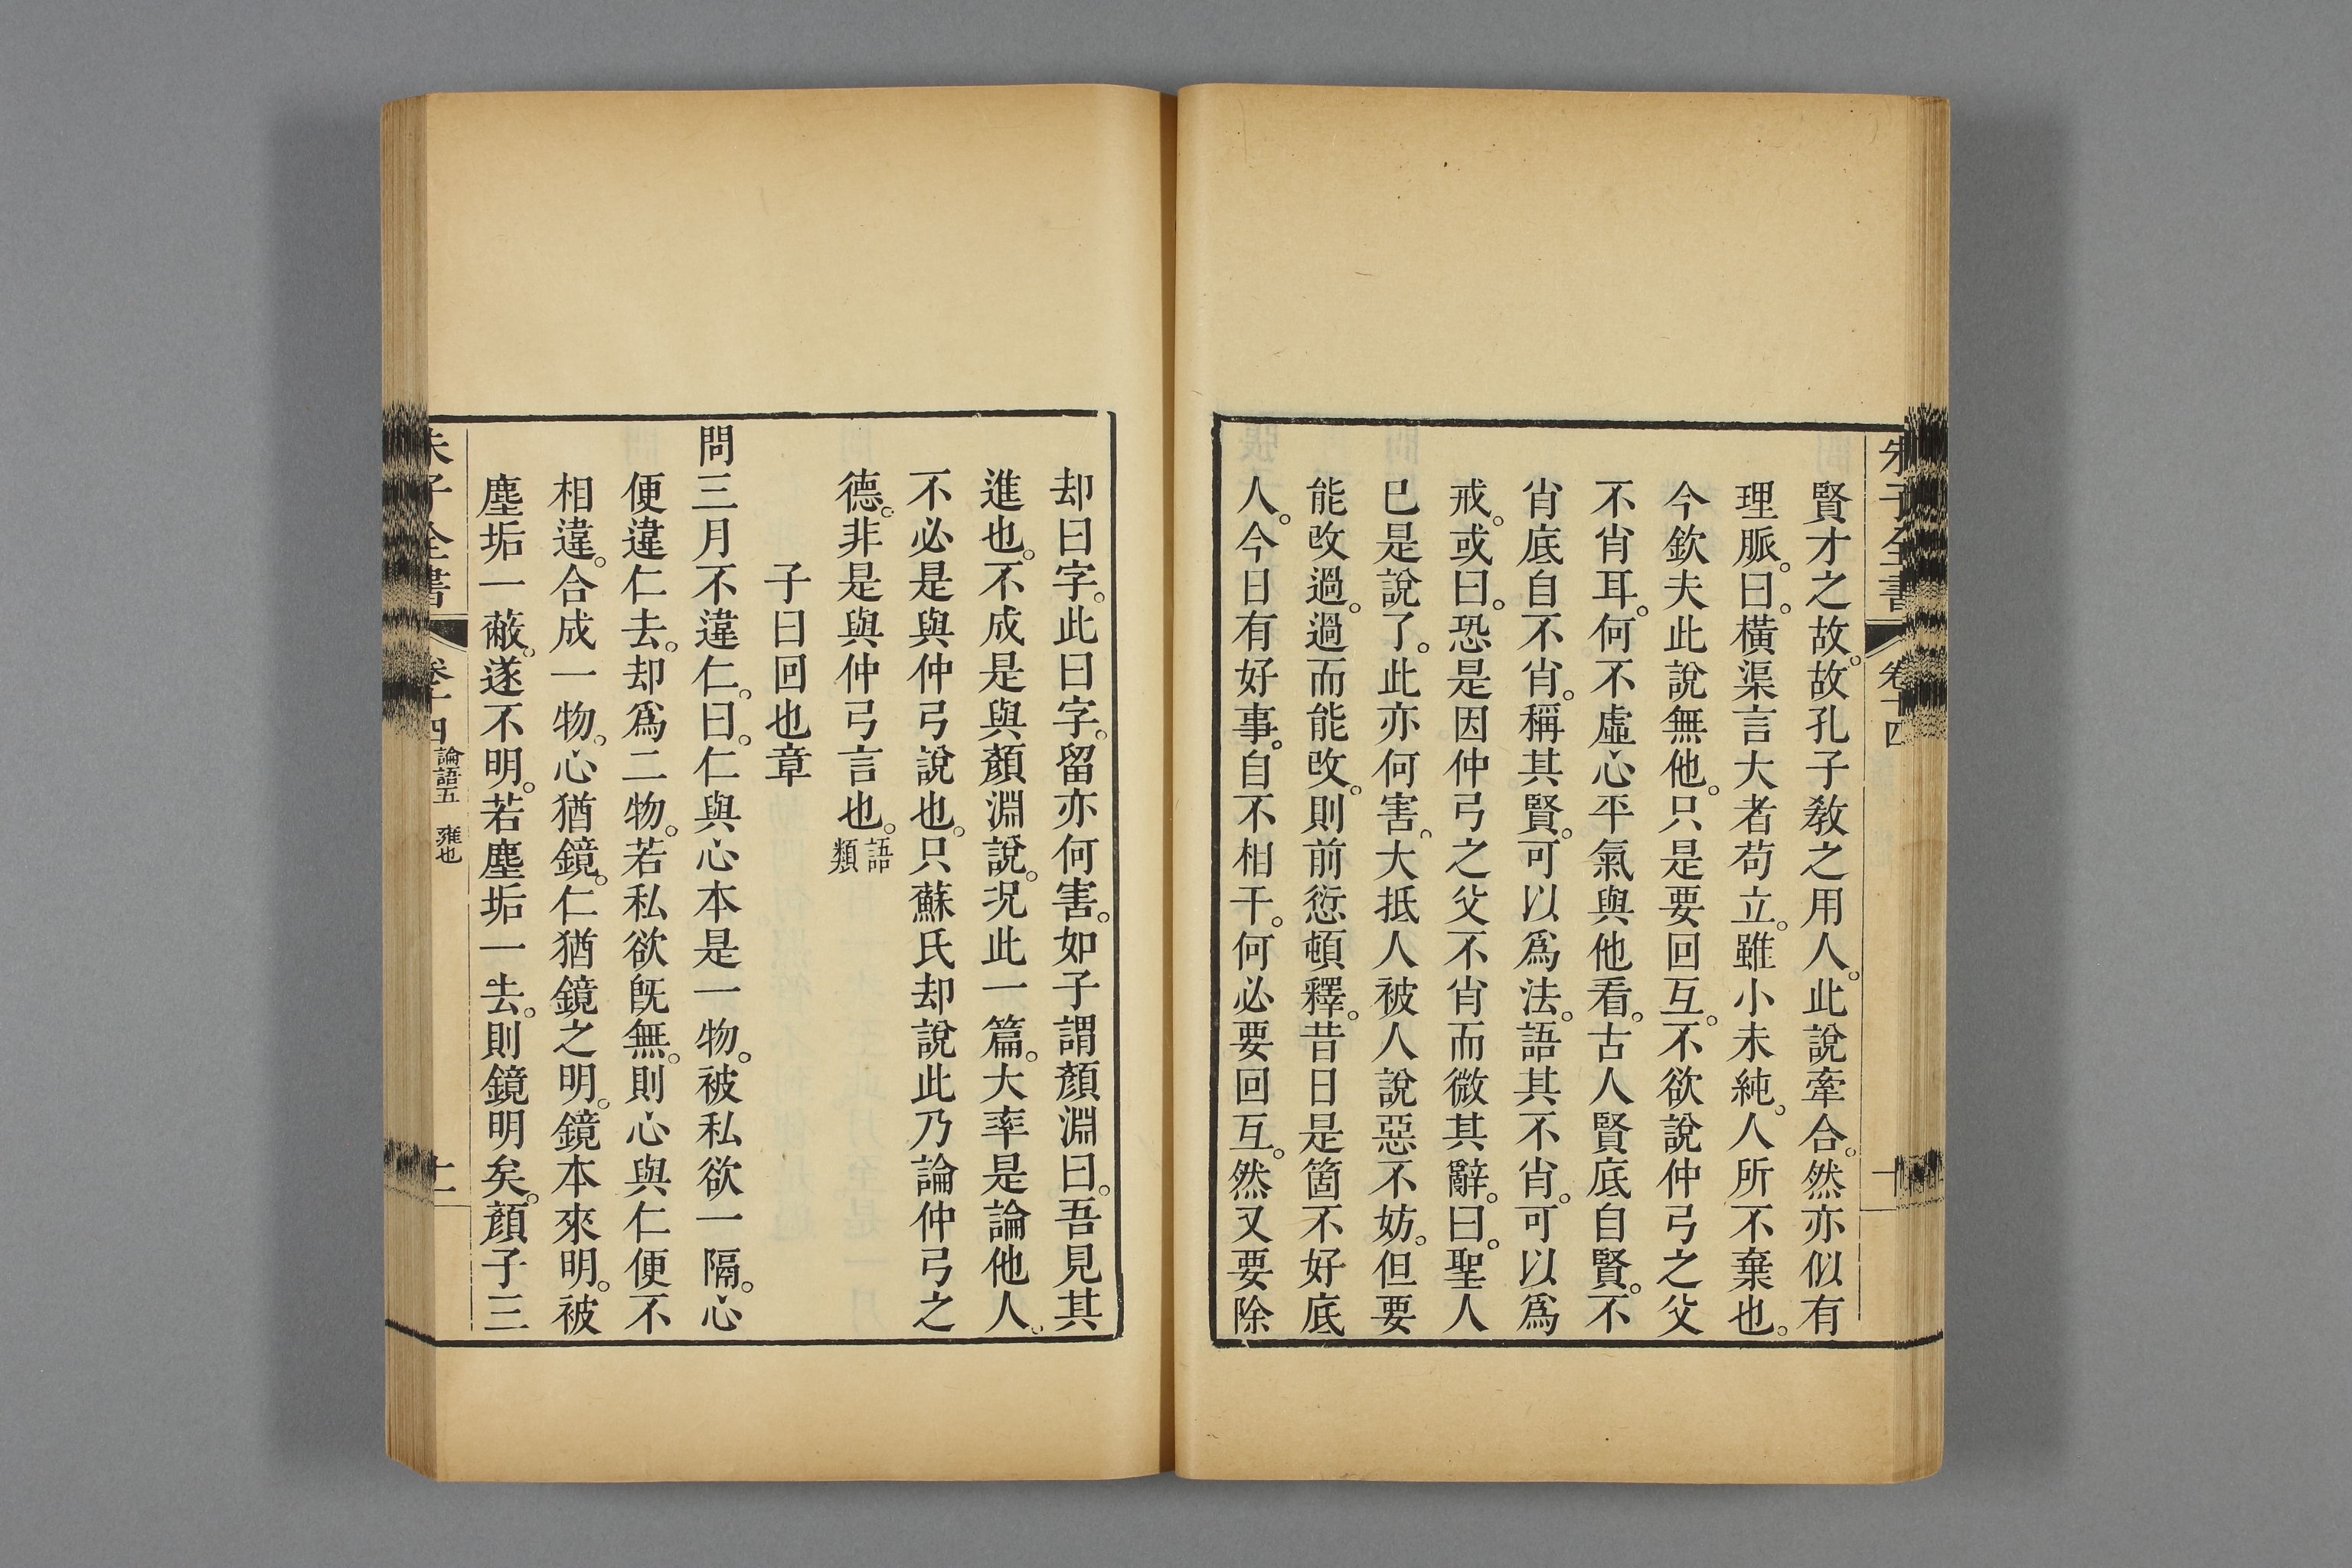 朱子全書 卷十四 十
賢才之故。故孔子敎之用人。此說牽合。然亦似有
理脈。曰。橫渠言大者苟立。雖小未純。人所不棄也。
今欽夫此說無他。只是要回互。不欲說仲弓之父
不肖耳。何不虛心平氣與他看。古人賢底自賢。不
肖底自不肖。稱其賢。可以爲法。語其不肖。可以爲
戒。或曰。恐是因仲弓之父不肖而微其辭。曰。聖人
已是說了。此亦何害。大抵人被人說惡不妨。但要
能改過。過而能改。則前愆頓釋。昔日是箇不好底
人。今日有好事。自不相干。何必要回互。然又要除
却曰字。此曰字。留亦何害。如子謂顏淵曰。吾見其
進也。不成是與顏淵說。况此一篇。大率是論他人。
不必是與仲弓說也。只蘇氏却說此乃論仲弓之
德。非是與仲弓言也。語類
子曰回也章
問三月不違仁。曰。仁與心本是一物。被私欲一隔。心
便違仁去。却爲二物。若私欲旣無。則心與仁便不
相違。合成一物。心猶鏡。仁猶鏡之明。鏡本來明。被
塵垢一蔽。遂不明。若塵垢一去。則鏡明矣。顏子三
朱子全書 卷十四 論語五 雍也